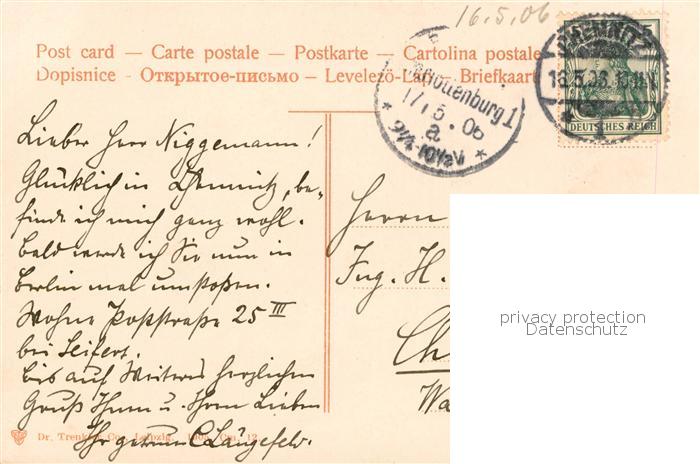 16.5.06
Post card — Carte postale — Postkarte — Cartolina postale
Dopisnice - Открытое-письмо — Levelező-Lap — Briefkaart
CHEMNITZ
16.5.06
DEUTSCHES REICH
Charlottenburg 1
17.5.06
a.
9¼-10½V
Lieber Herr Niggemann!
Glücklich in Chemnitz, be-
finde ich mich ganz wohl.
Bald werde ich Sie nun in
Berlin mal umstoßen.
Wohne Poststraße 25 III
bei Seifert.
Bis auf Weiteres herzlichen
Gruß Ihnen u. Ihren Lieben
Ihr getreuer C Längefeld.
Herrn
Ing. H.
Ch
Wa
privacy protection
Datenschutz
Dr. Trenkler Co., Leipzig. 1905. Cm. 12.